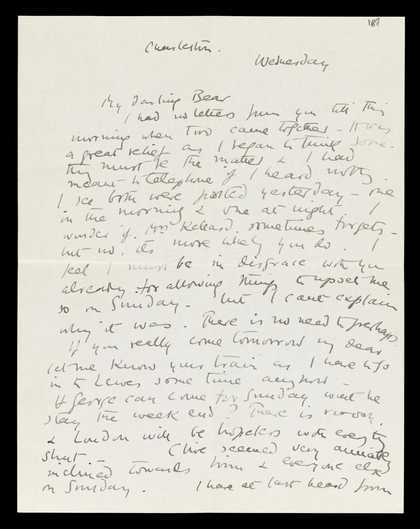 187
Charleston.
Wednesday
My Darling Bear
I had no letters from you till this
morning when two came together - It was
a great relief as I began to think some-
thing must be the matter & I had
meant to telephone if I heard nothing.
I see both were posted yesterday - one
in the morning & one at night. I
wonder if Mrs sometimes forgets -
but no, its more likely you do. I
feel I must be in disgrace with you
already for allowing things to upset me
so on Sunday. but I cant explain
why it was. There is no need to perhaps
If you really come tomorrow my dear
let me know your train as I have to go
in to Lewes some time anyhow -
If George can come for Sunday wont he
stay the week end? There is room,
& London will be hopeless with everything
shut - Clive seemed very amiably
inclined towards him & everyone else
on Sunday. I have at last heard from